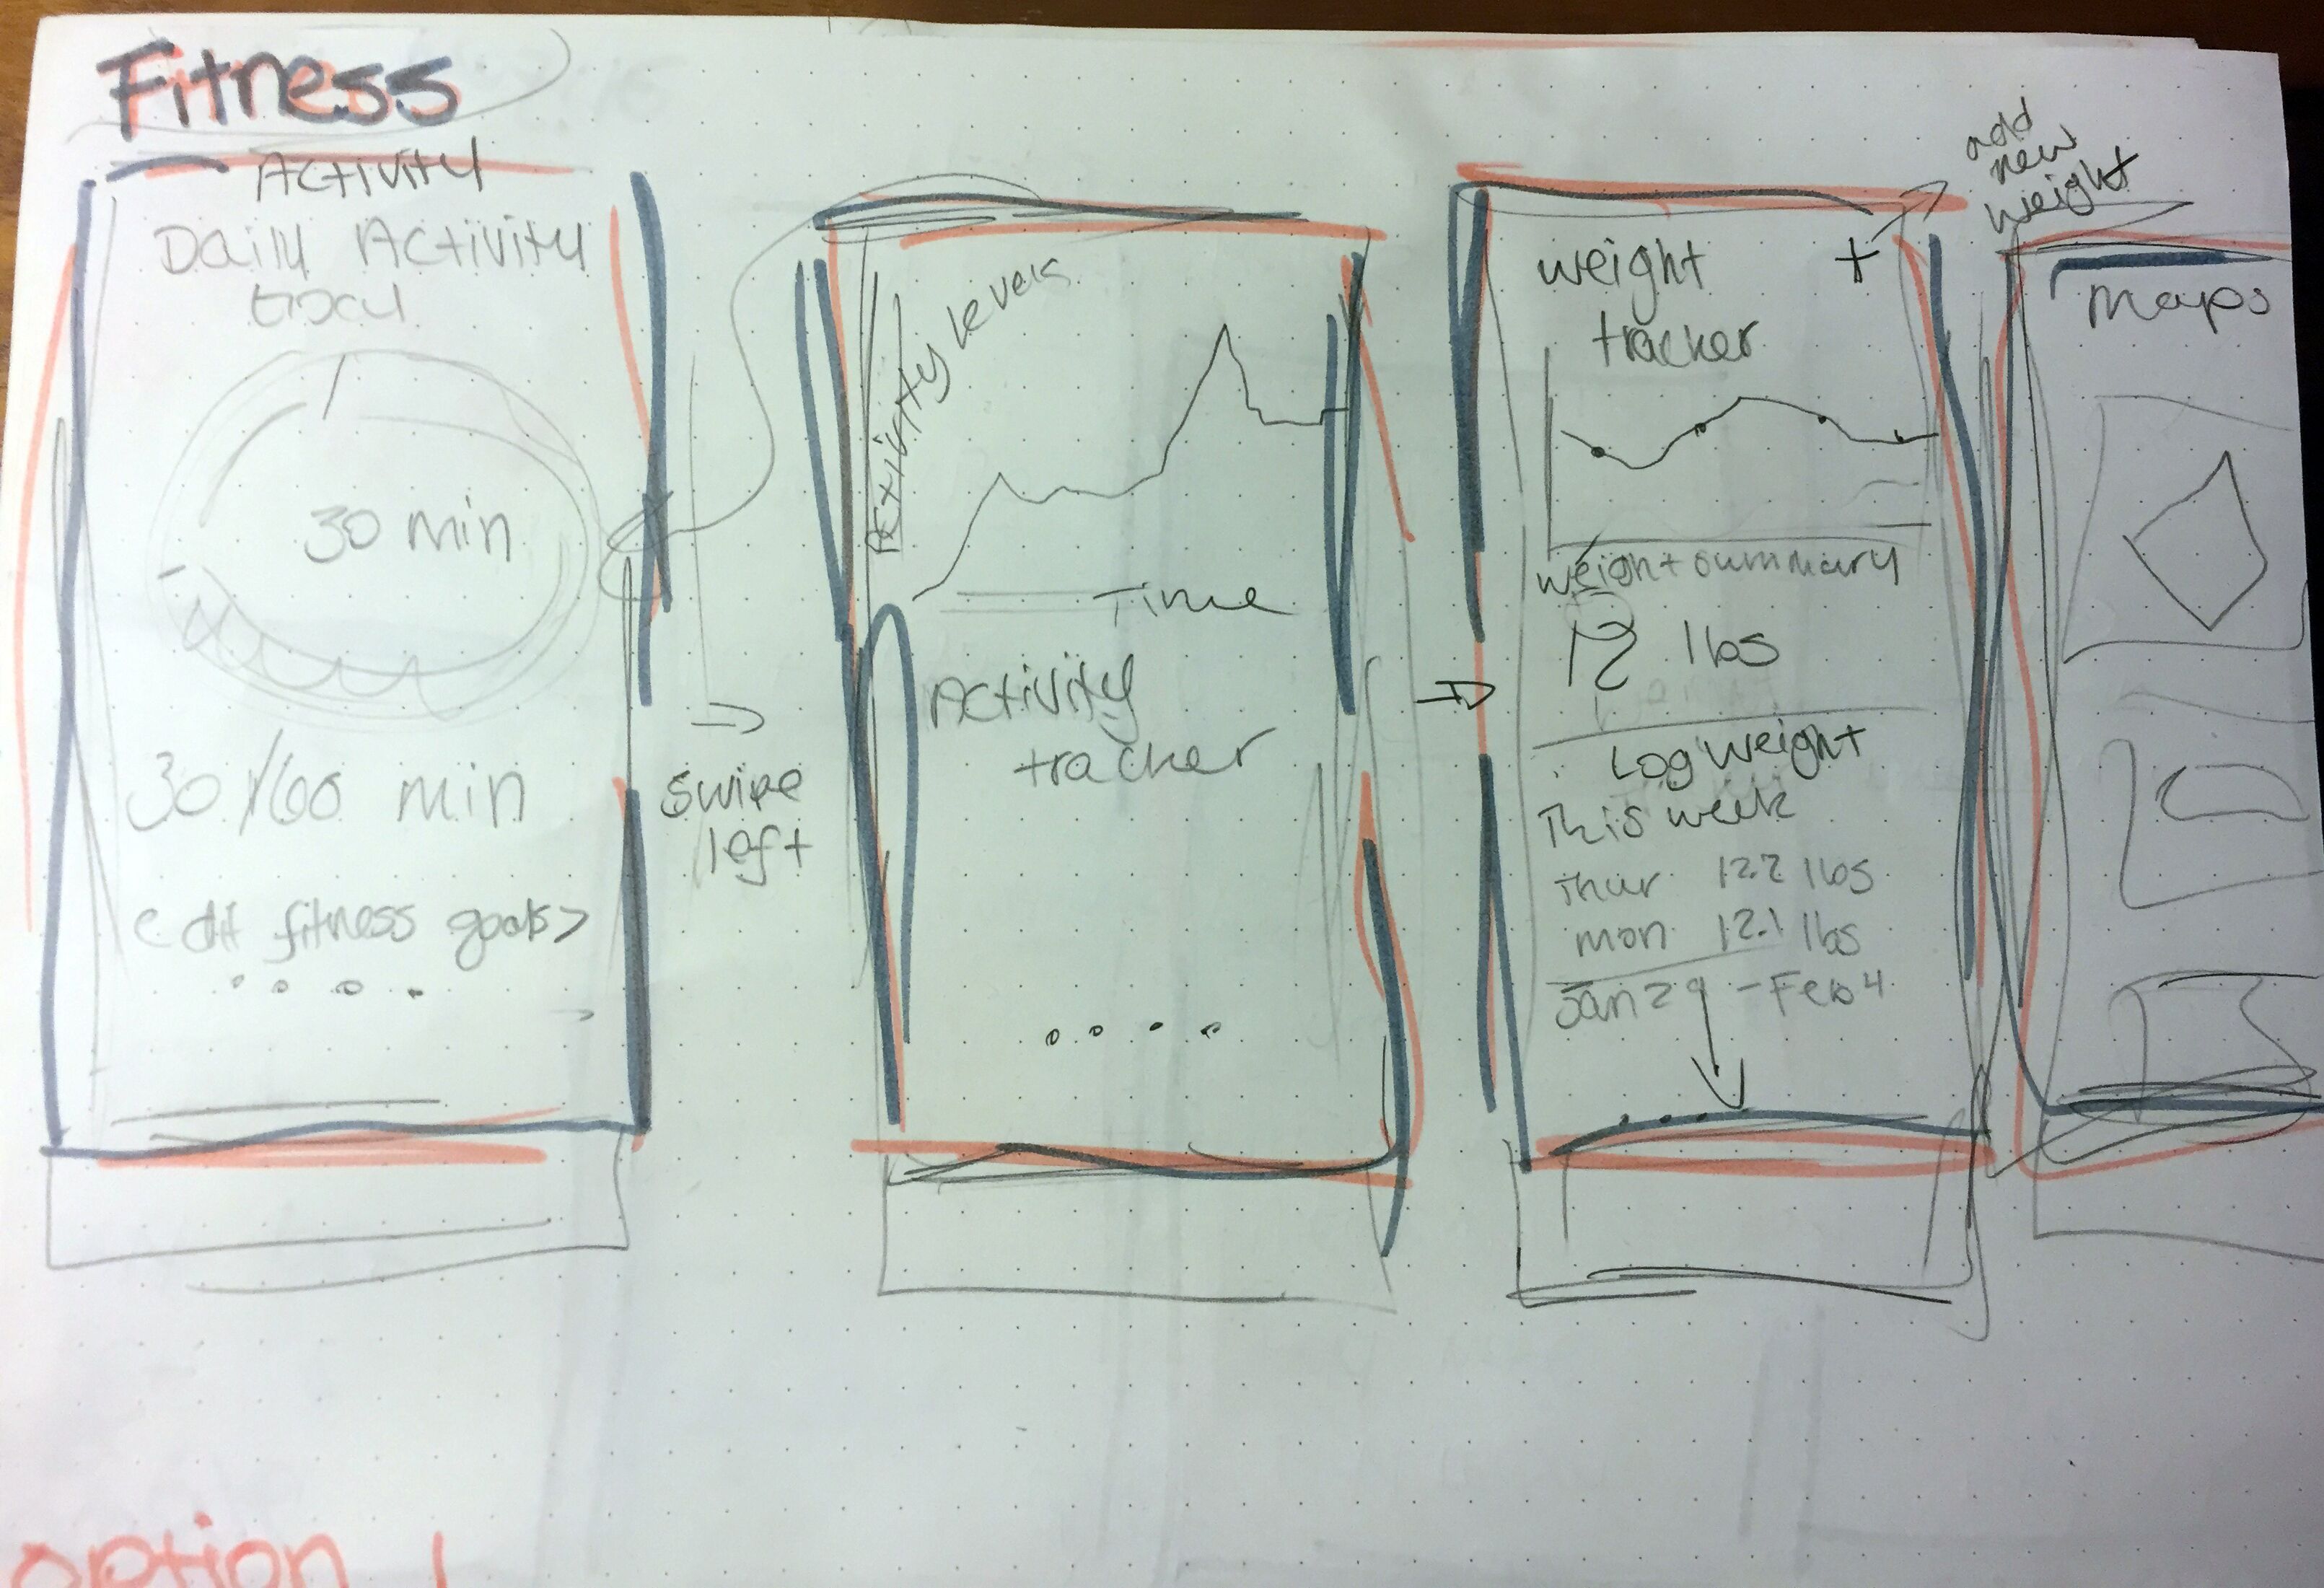 Fitness
Activity
Daily Activity
Goal
30 min
30/60 min
edit fitness goals >
swipe
left
Activity Levels
Time
Activity
tracker
add
new
weight
weight +
tracker
weight summary
12 lbs
Log weight
This week
Thur 12.2 lbs
mon 12.1 lbs
Jan 29 - Feb 4
Maps
option 1